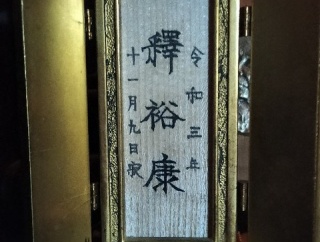 令和三年
釋裕康
十一月九日寂